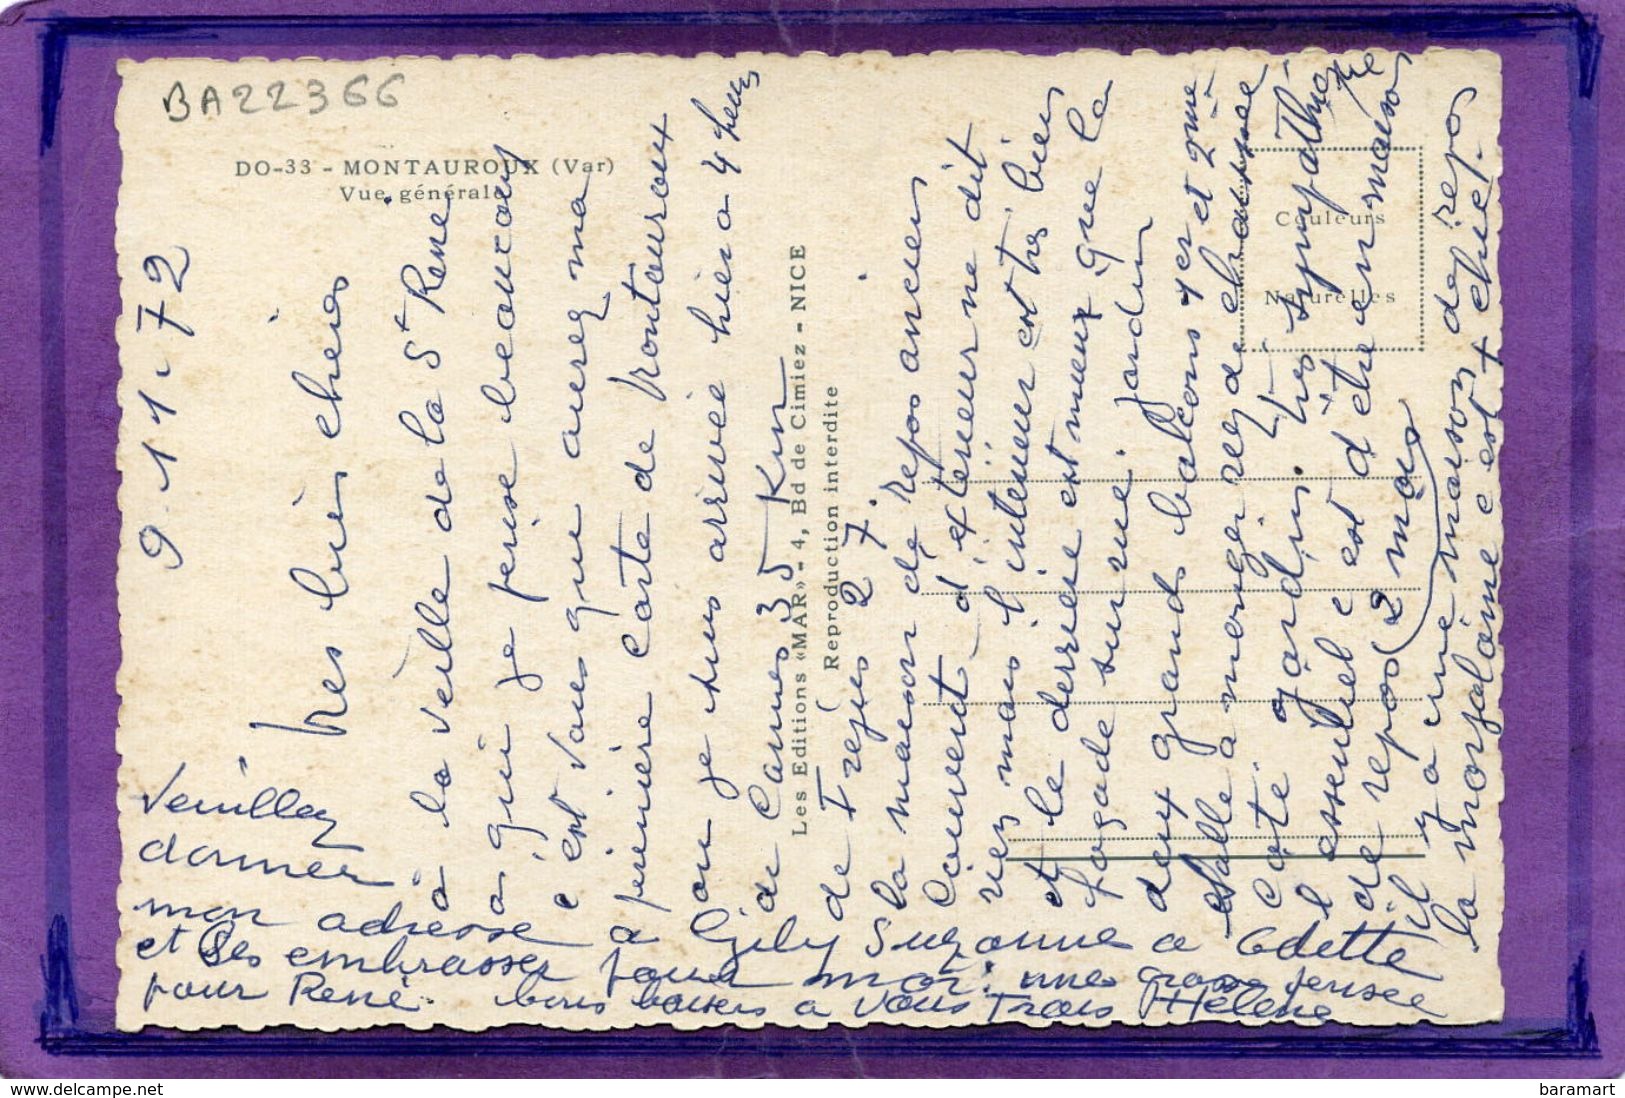 BA22366
DO-33 - MONTAUROUX (Var)
Vue générale
Les Editions «MAR» - 4, Bd de Cimiez - NICE
Reproduction interdite
Couleurs
Naturelles
9.11.72
Très bien chers
à la veille de la St René
à qui je pense beaucoup
c'est vous qui aurez ma
première carte de Montauroux
où je suis arrivée hier à 4 heures
de Cannes 35 Km
de Fréjus 27.
la maison de repos ancien
Couvent d'extérieur ne dit
rien mais l'intérieur est très bien
et le derrière est mieux que la
façade sur rue. jardin
deux grands balcons 1er et 2me
salle à manger rez de chaussée
côté jardin. très sympathique
l'essentiel c'est d'être en maison
de repos (2 mois
il y a une maison de repos
la morfolaine c'est + chuet.
Veuillez
donner
mon adresse
à Gily Suzanne a Odette
et les embrasser pour moi. une grosse pensée
pour René. bons baisers a vous Trois Hélène
delcampe.net
baramart